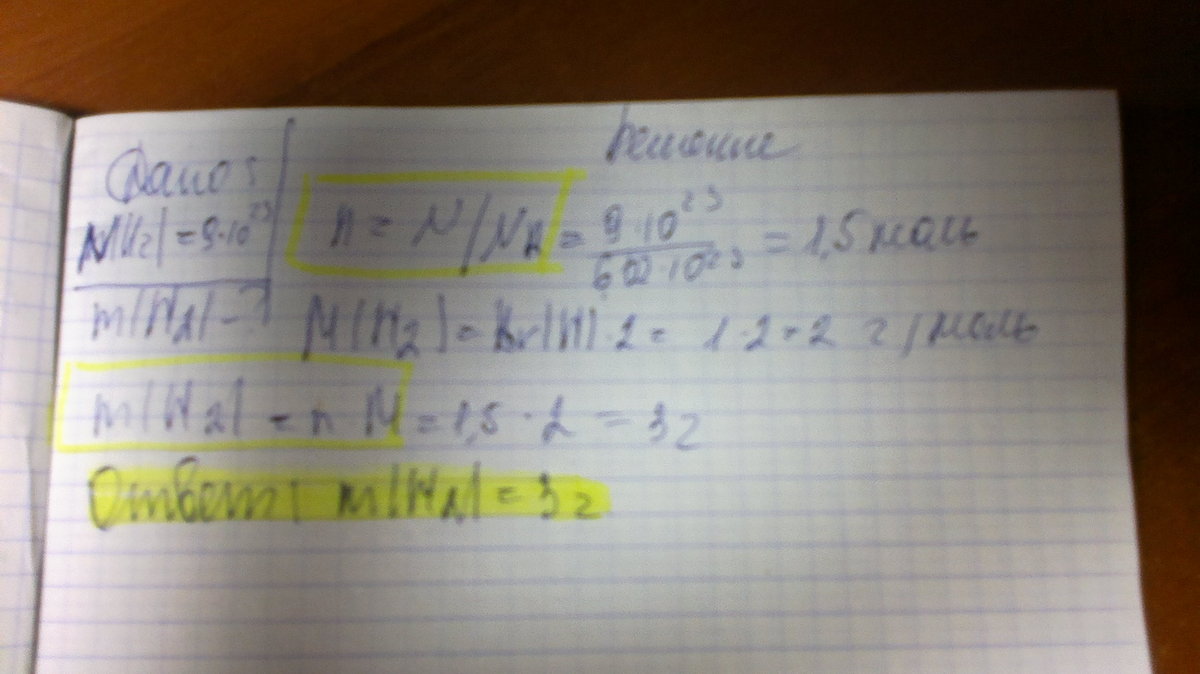 Решение
Дано:
N(H2) = 9·10^23
m(H2) - ?
n = N/NA = 9·10^23 / 6,02·10^23 = 1,5 моль
M(H2) = Ar(H)·2 = 1·2=2 г/моль
m(H2) = n M = 1,5 · 2 = 3 г
Ответ: m(H2) = 3 г